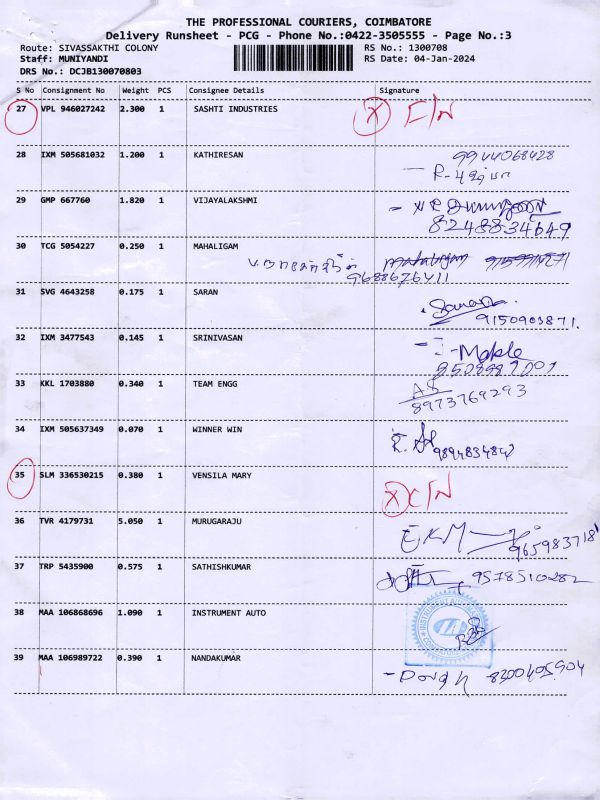 THE PROFESSIONAL COURIERS, COIMBATORE
Delivery Runsheet - PCG - Phone No.:0422-3505555 - Page No.:3
Route: SIVASSAKTHI COLONY RS No.: 1300708
Staff: MUNIYANDI RS Date: 04-Jan-2024
DRS No.: DCJB130070803
S No Consignment No Weight PCS Consignee Details Signature
27 VPL 946027242 2.300 1 SASHTI INDUSTRIES X C/N
28 IXM 505681032 1.200 1 KATHIRESAN 9944068428
29 GMP 667760 1.820 1 VIJAYALAKSHMI
8248834649
30 TCG 5054227 0.250 1 MAHALIGAM
9688676411
31 SVG 4643258 0.175 1 SARAN Saran
9150903871.
32 IXM 3477543 0.145 1 SRINIVASAN
33 KKL 1703880 0.340 1 TEAM ENGG
8973769293
34 IXM 505637349 0.070 1 WINNER WIN
35 SLM 336530215 0.380 1 VENSILA MARY X C/N
36 TVR 4179731 5.050 1 MURUGARAJU EKM
37 TRP 5435900 0.575 1 SATHISHKUMAR 9578510282
38 MAA 106868696 1.090 1 INSTRUMENT AUTO
39 MAA 106989722 0.390 1 NANDAKUMAR
8300405904